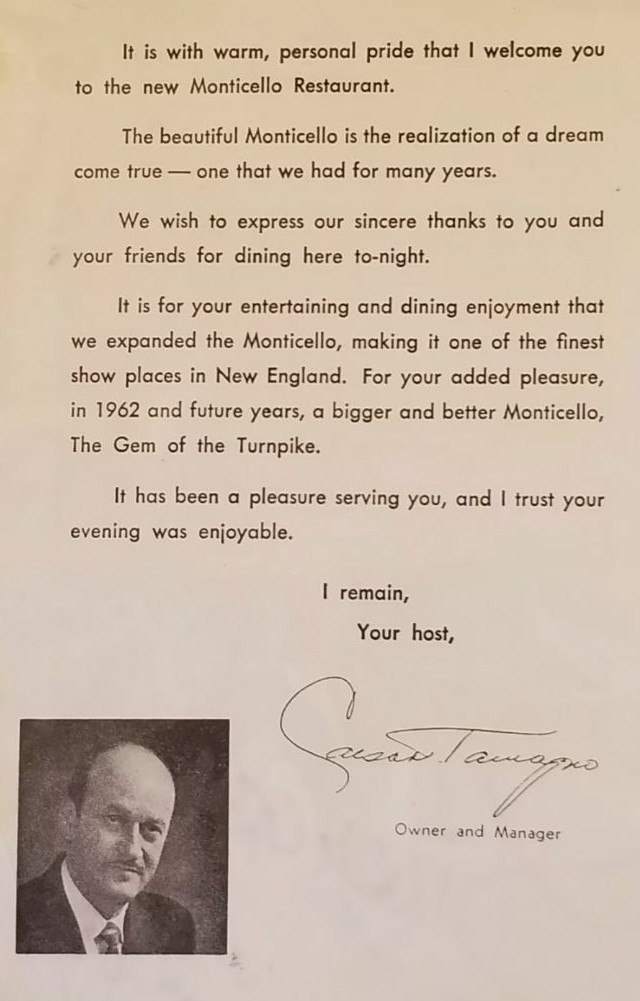 It is with warm, personal pride that I welcome you
to the new Monticello Restaurant.
The beautiful Monticello is the realization of a dream
come true — one that we had for many years.
We wish to express our sincere thanks to you and
your friends for dining here to-night.
It is for your entertaining and dining enjoyment that
we expanded the Monticello, making it one of the finest
show places in New England. For your added pleasure,
in 1962 and future years, a bigger and better Monticello,
The Gem of the Turnpike.
It has been a pleasure serving you, and I trust your
evening was enjoyable.
I remain,
Your host,
Caesar Tamagno
Owner and Manager